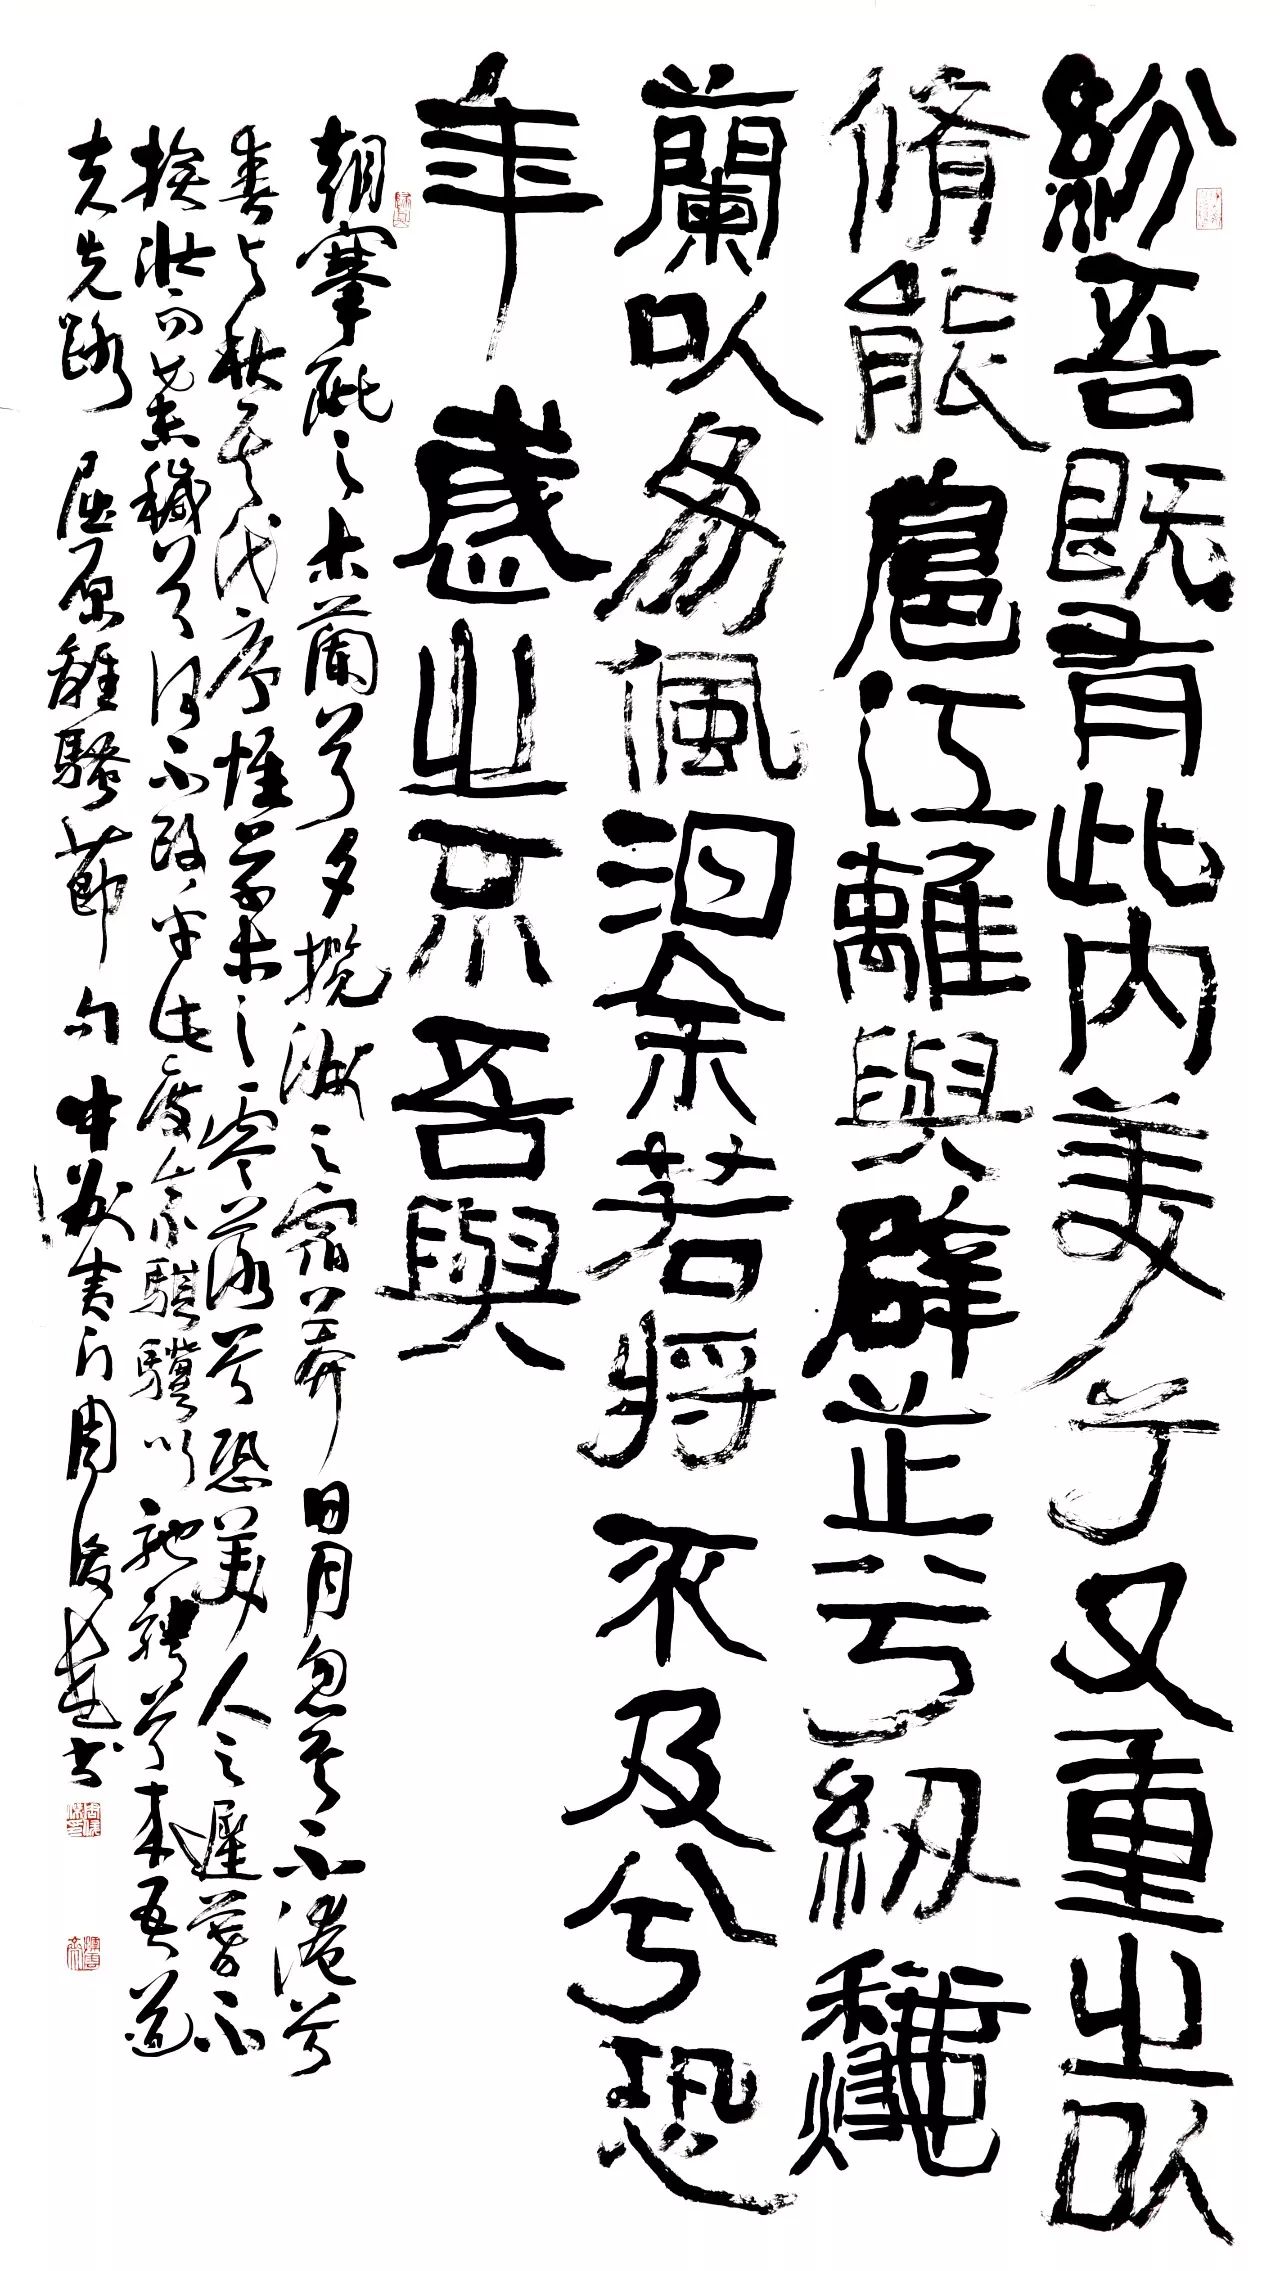 紛吾既有此內美兮又重之以
脩能扈江離與辟芷兮紉龝
蘭以為佩汩余若將不及兮恐
年歲之不吾與
朝搴阰之木蘭兮夕攬洲之宿莽日月忽其不淹兮
春与秋其代序惟草木之零落兮恐美人之遲暮不
撫壯而棄穢兮何不改乎此度乘騏驥以馳騁兮來吾道
夫先路 屈原離騷節句 周俊杰书